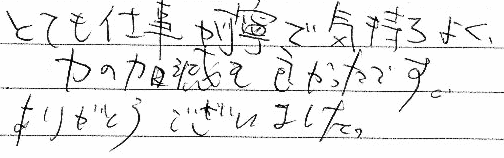 とても仕事が丁寧で気持ちよく、
力の加減も良かったです。
ありがとうございました。